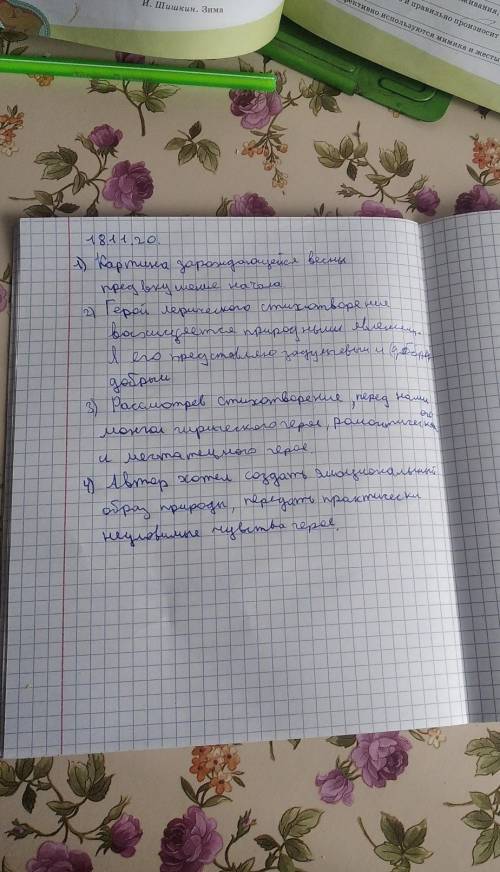 И. Шишкин. Зима
живания,
и правильно произносит
фективно используются мимика и жесты
18.11.20.
1) Картина зарождающейся весны
предвкушение начала
2) Герой лерического стихотворение
восхищается природными явлениям.
Я его представляю задумчевым и
добрым
3) Рассмотрев стихотворение, перед нами
лирического героя, романтического
и мечтательного герое.
4) Автор хотел создать эмоциональный
образ природы, передать практически
неуловимые чувства герое.